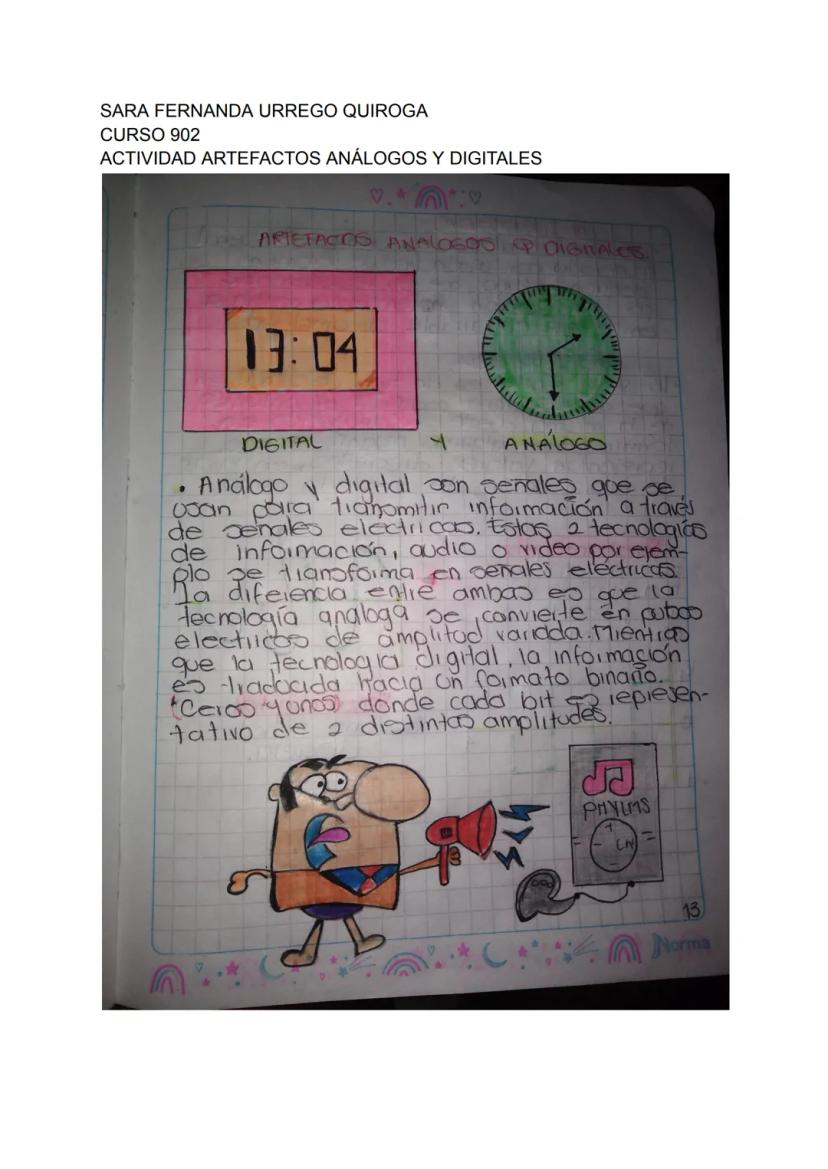 SARA FERNANDA URREGO QUIROGA
CURSO 902
ACTIVIDAD ARTEFACTOS ANÁLOGOS Y DIGITALES
ARTEFACOS ANALOGOS Y DIGITALES.
13:04
DIGITAL Y ANÁLOGO
• Análogo y digital son señales que se
usan para transmitir información a través
de señales electricas. Estas 2 tecnologias
de información, audio o video por ejem-
plo se transforma en señales eléctricas.
La diferencia entre ambas es que la
tecnología analoga se convierte en pulsos
electricos de amplitud variada. Mientras
que la tecnologia digital, la información
es traducida hacia un formato binario.
"Ceros y unos" donde cada bit es represen-
tativo de 2 distintas amplitudes.
PHYLMS
13
Norma